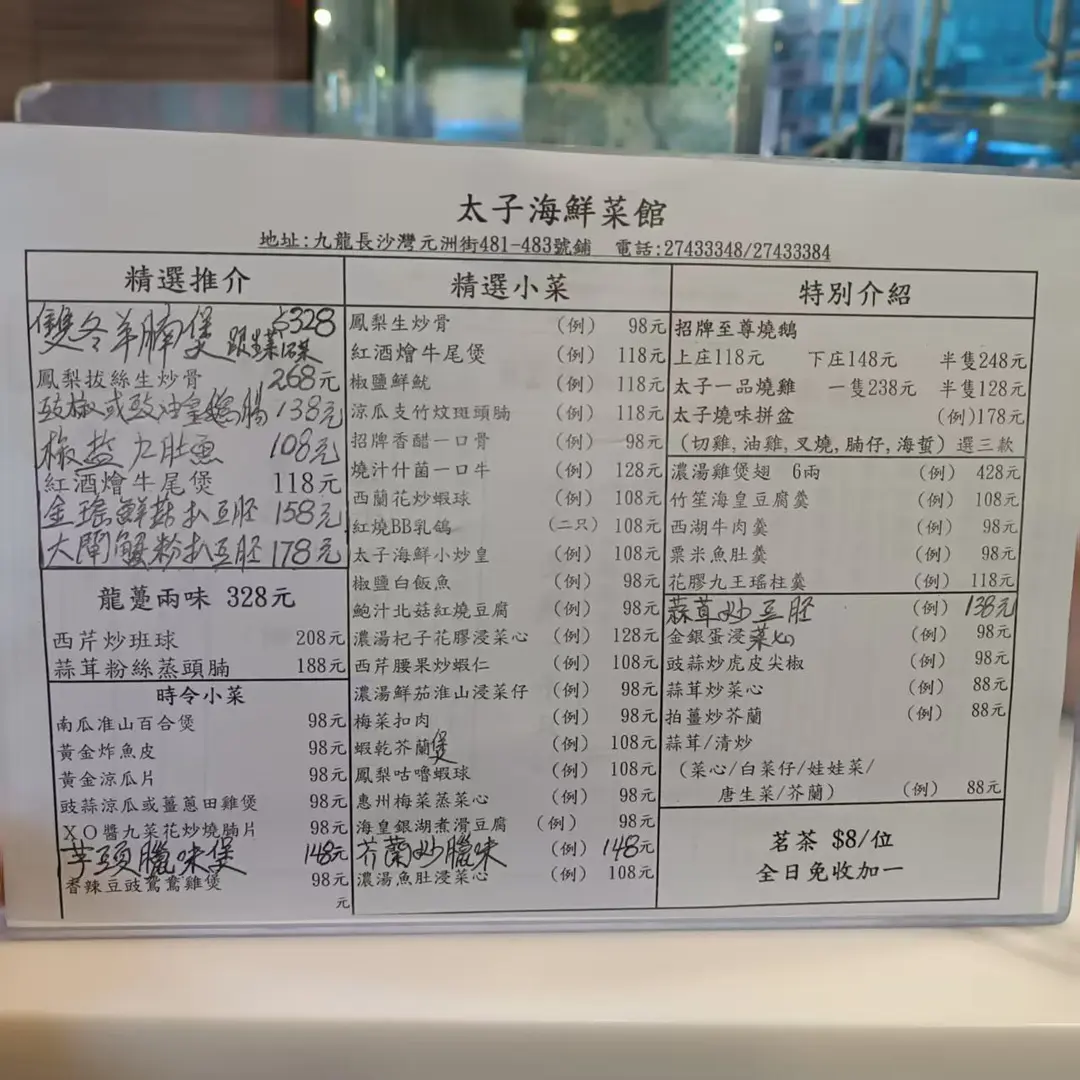 太子海鮮菜館
地址:九龍長沙灣元洲街481-483號鋪 電話:27433348/27433384
精選推介
雙冬羊腩煲 $328
跟生菜1碟
鳳梨拔絲生炒骨 268元
豉椒或豉油皇鵝腸 138元
椒盐九肚魚 108元
紅酒燴牛尾煲 118元
金瑤鮮菇扒豆胚 158元
大閘蟹粉扒豆胚 178元
龍躉兩味 328元
西芹炒班球 208元
蒜茸粉絲蒸頭腩 188元
時令小菜
南瓜准山百合煲 98元
黃金炸魚皮 98元
黃金涼瓜片 98元
豉蒜涼瓜或薑蔥田雞煲 98元
XO醬九菜花炒燒腩片 98元
芋頭臘味煲 148元
香辣豆豉鴛鴦雞煲 98元
元
精選小菜
鳳梨生炒骨 (例) 98元
紅酒燴牛尾煲 (例) 118元
椒鹽鮮魷 (例) 118元
涼瓜支竹炆斑頭腩 (例) 118元
招牌香醋一口骨 (例) 98元
燒汁什菌一口牛 (例) 128元
西蘭花炒蝦球 (例) 108元
紅燒BB乳鴿 (二只) 108元
太子海鮮小炒皇 (例) 108元
椒鹽白飯魚 (例) 98元
鮑汁北菇紅燒豆腐 (例) 98元
濃湯杞子花膠浸菜心 (例) 128元
西芹腰果炒蝦仁 (例) 108元
濃湯鮮茄淮山浸菜仔 (例) 98元
梅菜扣肉 (例) 98元
蝦乾芥蘭煲 (例) 108元
鳳梨咕嚕蝦球 (例) 108元
惠州梅菜蒸菜心 (例) 98元
海皇銀湖煮滑豆腐 (例) 98元
芥蘭炒臘味 (例) 148元
濃湯魚肚浸菜心 (例) 108元
特別介紹
招牌至尊燒鵝
上庄118元 下庄148元 半隻248元
太子一品燒雞 一隻238元 半隻128元
太子燒味拼盆 (例)178元
(切雞,油雞,叉燒,腩仔,海蜇) 選三款
濃湯雞煲翅 6兩 (例) 428元
竹笙海皇豆腐羹 (例) 108元
西湖牛肉羹 (例) 98元
粟米魚肚羹 (例) 98元
花膠九王瑤柱羹 (例) 118元
蒜茸炒豆胚 (例) 138元
金銀蛋浸菜心 (例) 98元
豉蒜炒虎皮尖椒 (例) 98元
蒜茸炒菜心 (例) 88元
拍薑炒芥蘭 (例) 88元
蒜茸/清炒
(菜心/白菜仔/娃娃菜/
唐生菜/芥蘭) (例) 88元
茗茶 $8/位
全日免收加一